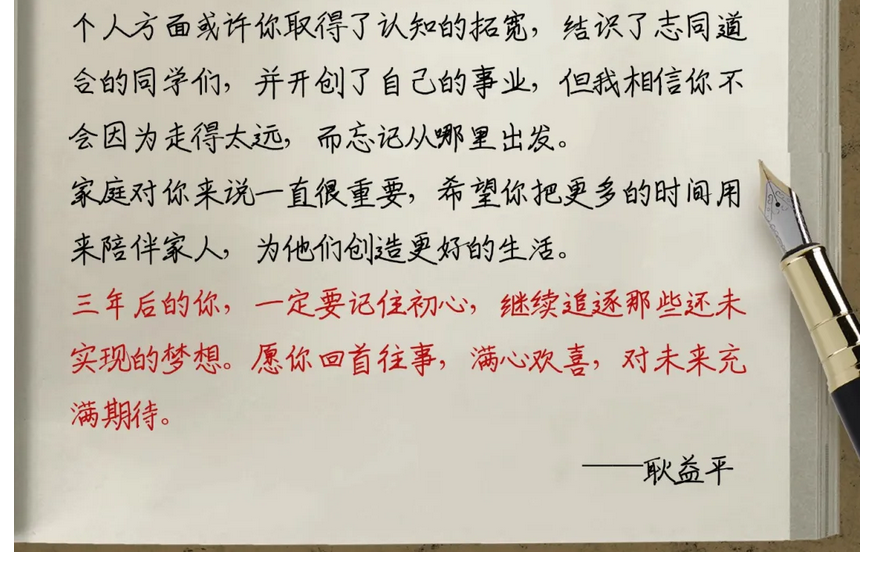 个人方面或许你取得了认知的拓宽，结识了志同道
合的同学们，并开创了自己的事业，但我相信你不
会因为走得太远，而忘记从哪里出发。
家庭对你来说一直很重要，希望你把更多的时间用
来陪伴家人，为他们创造更好的生活。
三年后的你，一定要记住初心，继续追逐那些还未
实现的梦想。愿你回首往事，满心欢喜，对未来充
满期待。
——耿益平